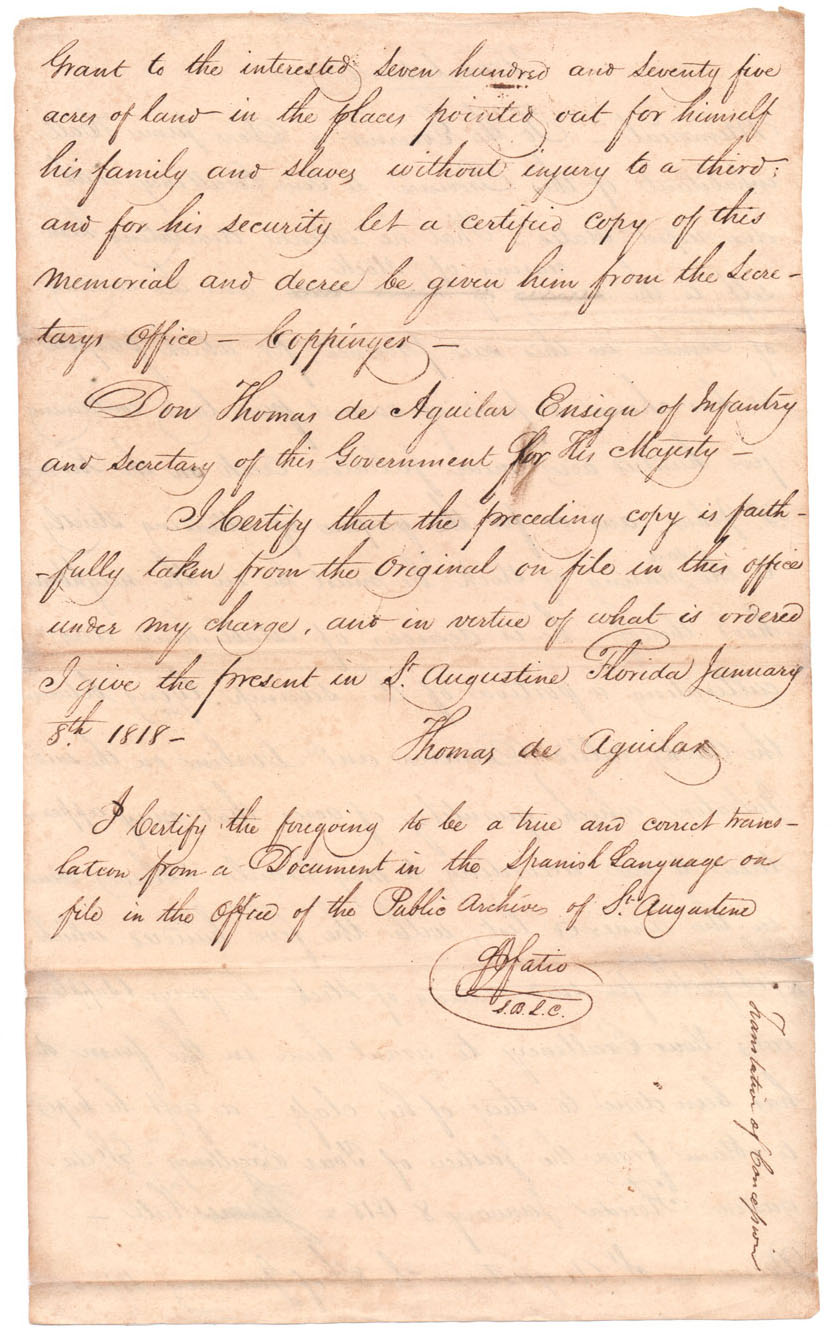 Grant to the interested seven hundred and seventy five
acres of land in the places pointed out for himself
his family and slaves without injury to a third;
and for his security let a certified copy of this
memorial and decree be given him from the Secre-
tarys Office — Coppinger —
Don Thomas de Aguilar Ensign of Infantry
and Secretary of this Government for His Majesty —
I Certify that the preceding copy is faith-
-fully taken from the Original on file in this office
under my charge, and in virtue of what is ordered
I give the present in St. Augustine Florida January
8th. 1818 —
Thomas de Aguilar
I Certify the foregoing to be a true and correct trans-
lation from a Document in the Spanish Language on
file in the Office of the Public Archives of St. Augustine
Fatio
S.B.L.C.
Translation of Concession